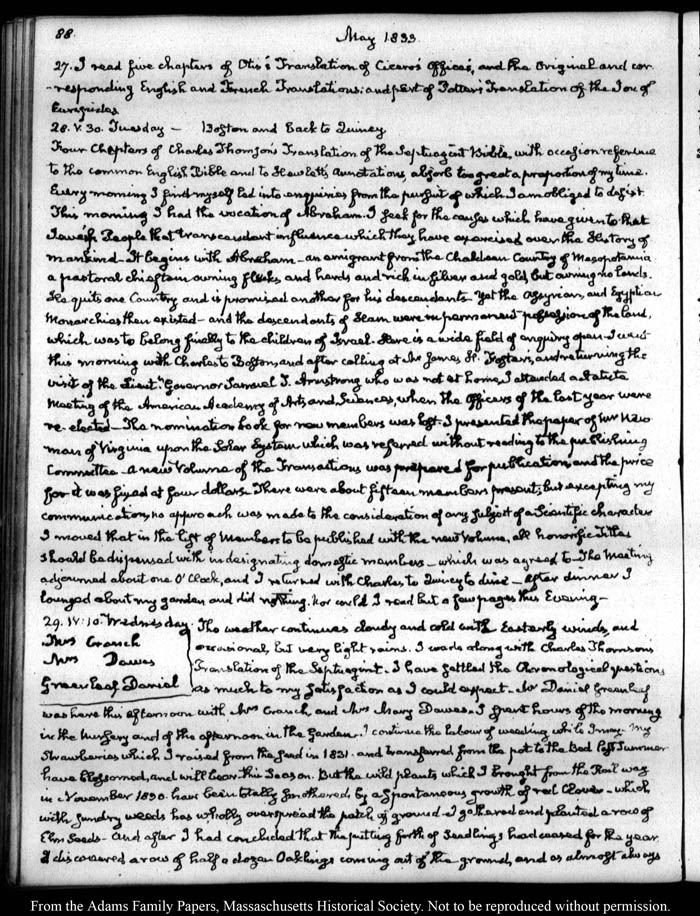 88. May 1833.
27. I read five chapters of Otis's Translation of Cicero's Offices, and the Original and cor-
-responding English and French Translations: and part of Potter's Translation of the Ion of
Euripides
28. V.30. Tuesday — Boston and Back to Quincy
Four Chapters of Charles Thomson's Translation of the Septuagint Bible, with occasion reference
to the common English Bible and to Hewlett's Annotations, absorb too great a proportion of my time.
Every morning I find myself led into enquiries from the pursuit of which I am obliged to desist.
This morning I had the vocation of Abraham. I seek for the causes which have given to that
Jewish People that transcendent influence which they have exercised over the History of
mankind. It begins with Abraham — an emigrant from the Chaldean Country of Mesopotamia
a pastoral chieftain owning flocks, and herds and rich in silver and gold, but owning no lands.
He quits one Country and is promised another for his descendants. Yet the Assyrian, and Egyptian
Monarchies then existed — and the descendants of Ham were in permanent possession of the land,
which was to belong finally to the children of Israel. Here is a wide field of enquiry open. I went
this morning with Charles to Boston, and after calling at Mr James H. Foster's, and returning the
visit of the Lieut. Governor Samuel T. Armstrong who was not at home, I attended a Statute
Meeting of the American Academy of Arts and Sciences, when the Officers of the last year were
re-elected — The nomination book for new members was lost. I presented the paper of Mr
man of Virginia upon the Solar System which was referred without reading to the publishing
Committee — a new Volume of the Transactions was prepared for publication, and the price
for it was fixed at four dollars. There were about fifteen members present; but excepting my
communication, no approach was made to the consideration of any subject of a Scientific character
I moved that in the list of Members to be published with the new Volume, all honorific titles
should be dispensed with in designating domestic members — which was agreed to — The Meeting
adjourned about one O'Clock, and I returned with Charles to Quincy to dine — after dinner I
lounged about my garden and did nothing. Nor could I read but a few pages this Evening —
29. IV.10. Wednesday. The weather continues cloudy and cold with Easterly winds, and
Mrs Cranch occasional, but very light rains. I work along with Charles Thomson's
Mrs Dawes Translation of the Septuagint. I have settled the Chronological questions
Greenleaf Daniel as much to my satisfaction as I could expect. Mr Daniel Greenleaf
was here this afternoon with Mrs Cranch and Mrs Mary Dawes. I spent hours of the morning
in the nursery and of the afternoon in the Garden. I continue the labour of weeding while I may. My
Strawberries which I raised from the seed in 1831. and transferred from the pot to the Bed last Summer
have blossomed, and will bear this Season. But the wild plants which I brought from the Rail way
in November 1830. have been totally smothered by a spontaneous growth of red Clover — which
with sundry weeds has wholly overspread the patch of ground. I gathered and planted a row of
Elm Seeds — and after I had concluded that the putting forth of Seedlings had ceased for the year
I discovered a row of half a dozen Oaklings coming out of the ground, and as almost always
From the Adams Family Papers, Massachusetts Historical Society. Not to be reproduced without permission.